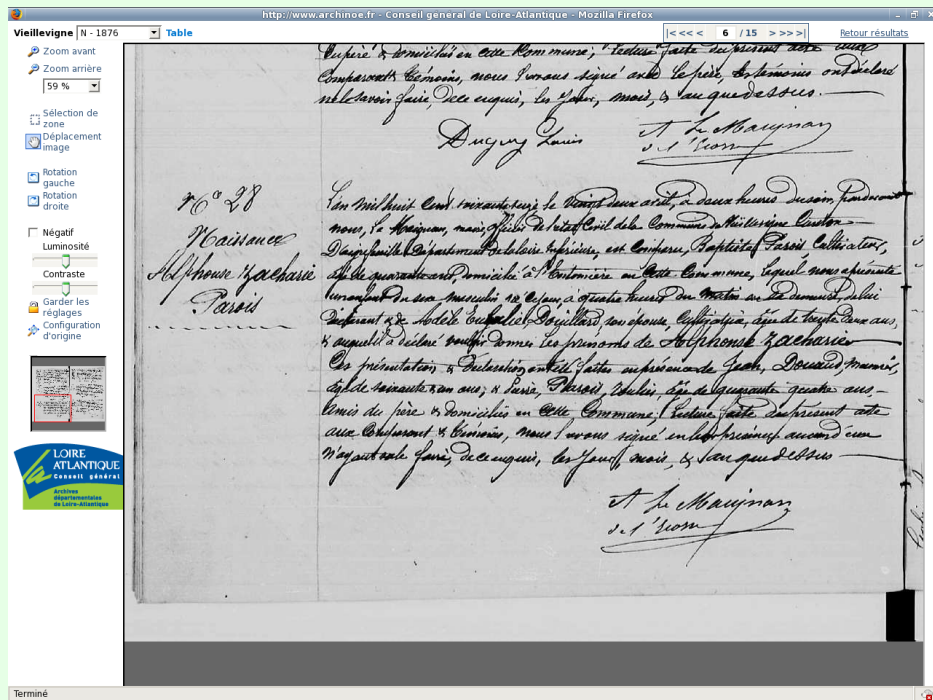 http://www.archinoe.fr - Conseil general de Loire-Atlantique - Mozilla Firefox
Vieillevigne N - 1876 Table
|< << < 6 / 15 > >> >|
Retour résultats
Zoom avant
Zoom arrière
59 %
Sélection de
zone
Déplacement
image
Rotation
gauche
Rotation
droite
Négatif
Luminosité
Contraste
Garder les
réglages
Configuration
d'origine
LOIRE
ATLANTIQUE
Conseil général
Archives
départementales
de Loire-Atlantique
du père & domiciliés en cette Commune; Lecture faite du présent acte aux
Comparant & témoins, nous l'avons signé avec le père, les témoins ont déclaré
ne le savoir faire, de ce enquis, les jour, mois, & an que dessus.
Duguy Louis
A Le Maignan
de l'
N° 28
Naissance
Alphonse Zacharie
Parois
L'an mil huit Cent soixante seize le vingt deux avril, à deux heures du soir, pardevant
nous, Le Maignan, maire, officier de l'état Civil de la Commune de Vieillevigne Canton
D'aigrefeuille Département de la Loire Inférieure, est Comparu, Baptiste Parois, Cultivateur,
âgé de quarante ans, domicilié à en cette Commune, lequel nous a présenté
un enfant du sexe masculin né ce jour, à quatre heures du matin en sa demeure, de lui
déclarant & de Adèle Eugalie Douillard son épouse, Cultivatrice, âgée de trente deux ans,
& auquel il a déclaré vouloir donner les prénoms de Alphonse Zacharie
Ces présentation & Déclaration ont été faites en présence de Jean, Douaud,
âgé de soixante & un ans; & Pierre, Parois, âgé de quarante quatre ans
Amis du père & domiciliés en Cette Commune; Lecture faite du présent acte
aux Comparant & témoins, nous l'avons signé aucun d'eux
n'ayant su le faire, de ce enquis, les Jour, mois, & an que dessus
A Le Maignan
de l'
Terminé